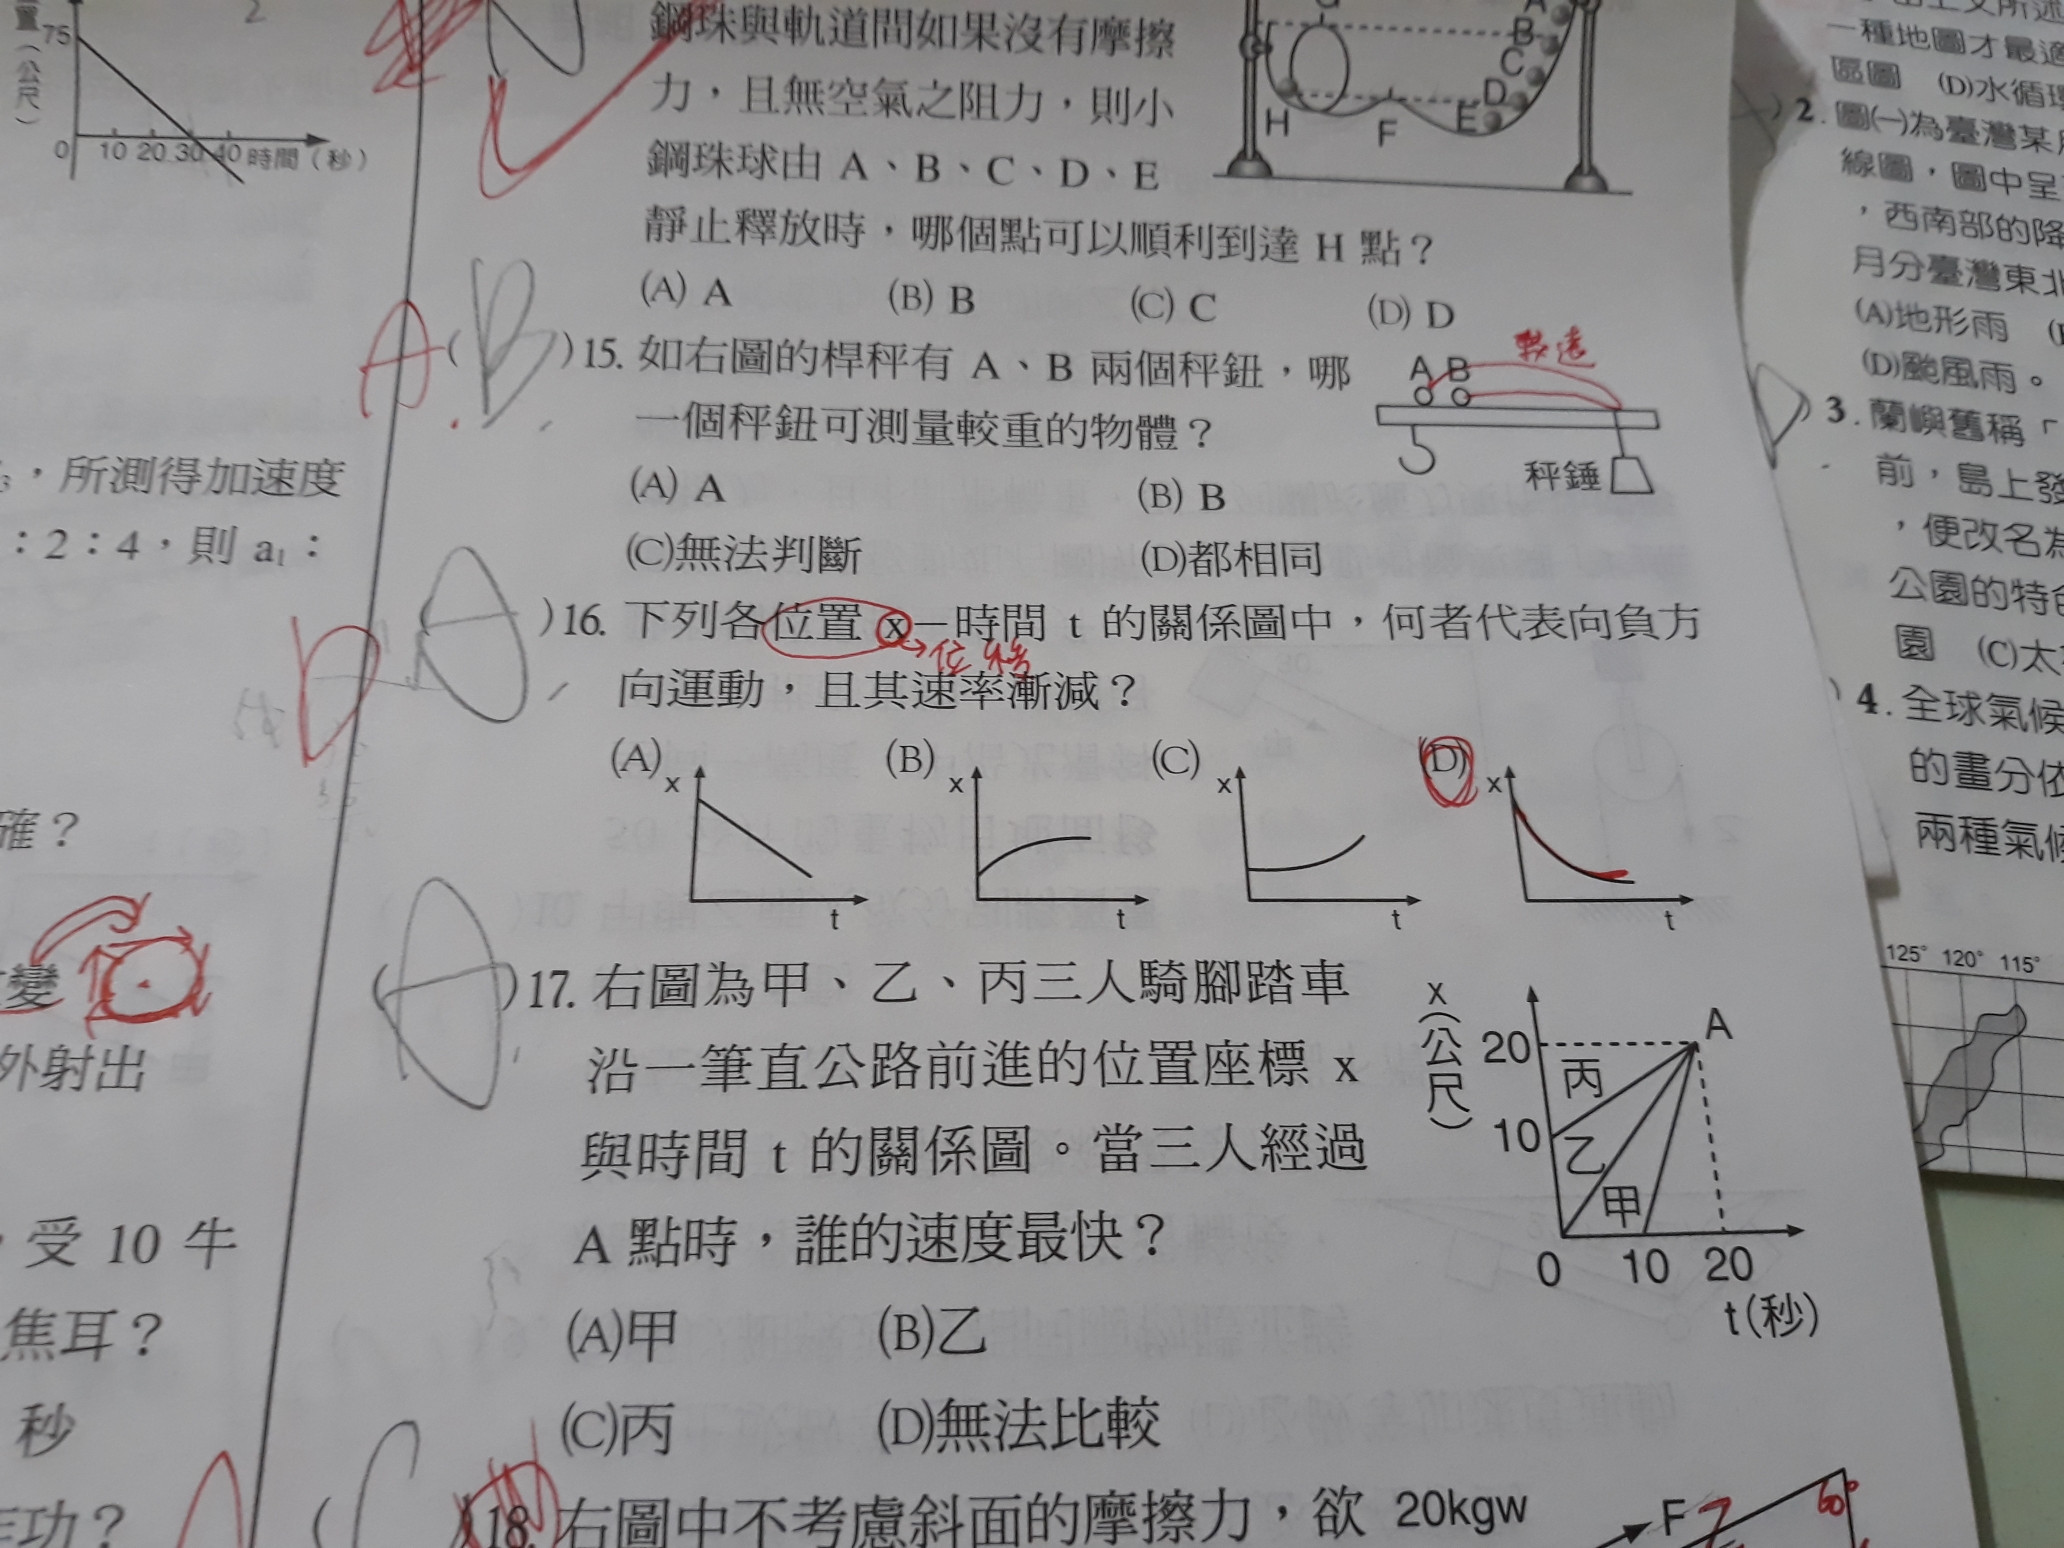 置(公尺)
75
0 10 20 30 40 時間(秒)
2
，所測得加速度
：2：4，則 a₁：
確？
變
外射出
受 10 牛
焦耳？
秒
功？
鋼珠與軌道間如果沒有摩擦
力，且無空氣之阻力，則小
鋼珠球由 A、B、C、D、E
靜止釋放時，哪個點可以順利到達 H 點？
(A) A (B) B (C) C (D) D
G A B C D E F H
A (B)15. 如右圖的桿秤有 A、B 兩個秤鈕，哪
一個秤鈕可測量較重的物體？
(A) A (B) B
(C)無法判斷 (D)都相同
較遠
A B
秤錘
D (A)16. 下列各位置 x－時間 t 的關係圖中，何者代表向負方
→位移
向運動，且其速率漸減？
(A) (B) (C) (D)
x t x t x t x t
(A)17. 右圖為甲、乙、丙三人騎腳踏車
沿一筆直公路前進的位置座標 x
與時間 t 的關係圖。當三人經過
A 點時，誰的速度最快？
(A)甲 (B)乙
(C)丙 (D)無法比較
x(公尺)
20 A
丙
10 乙
甲
0 10 20
t(秒)
(C)18. 右圖中不考慮斜面的摩擦力，欲 20kgw
F
60°
一種地圖才最適
區圖 (D)水循環
)2. 圖㈠為臺灣某
線圖，圖中呈
，西南部的降
月分臺灣東北
(A)地形雨
(D)颱風雨。
)3. 蘭嶼舊稱「
前，島上發
，便改名為
公園的特色
園 (C)太
)4. 全球氣候
的畫分依
兩種氣候
125° 120° 115°